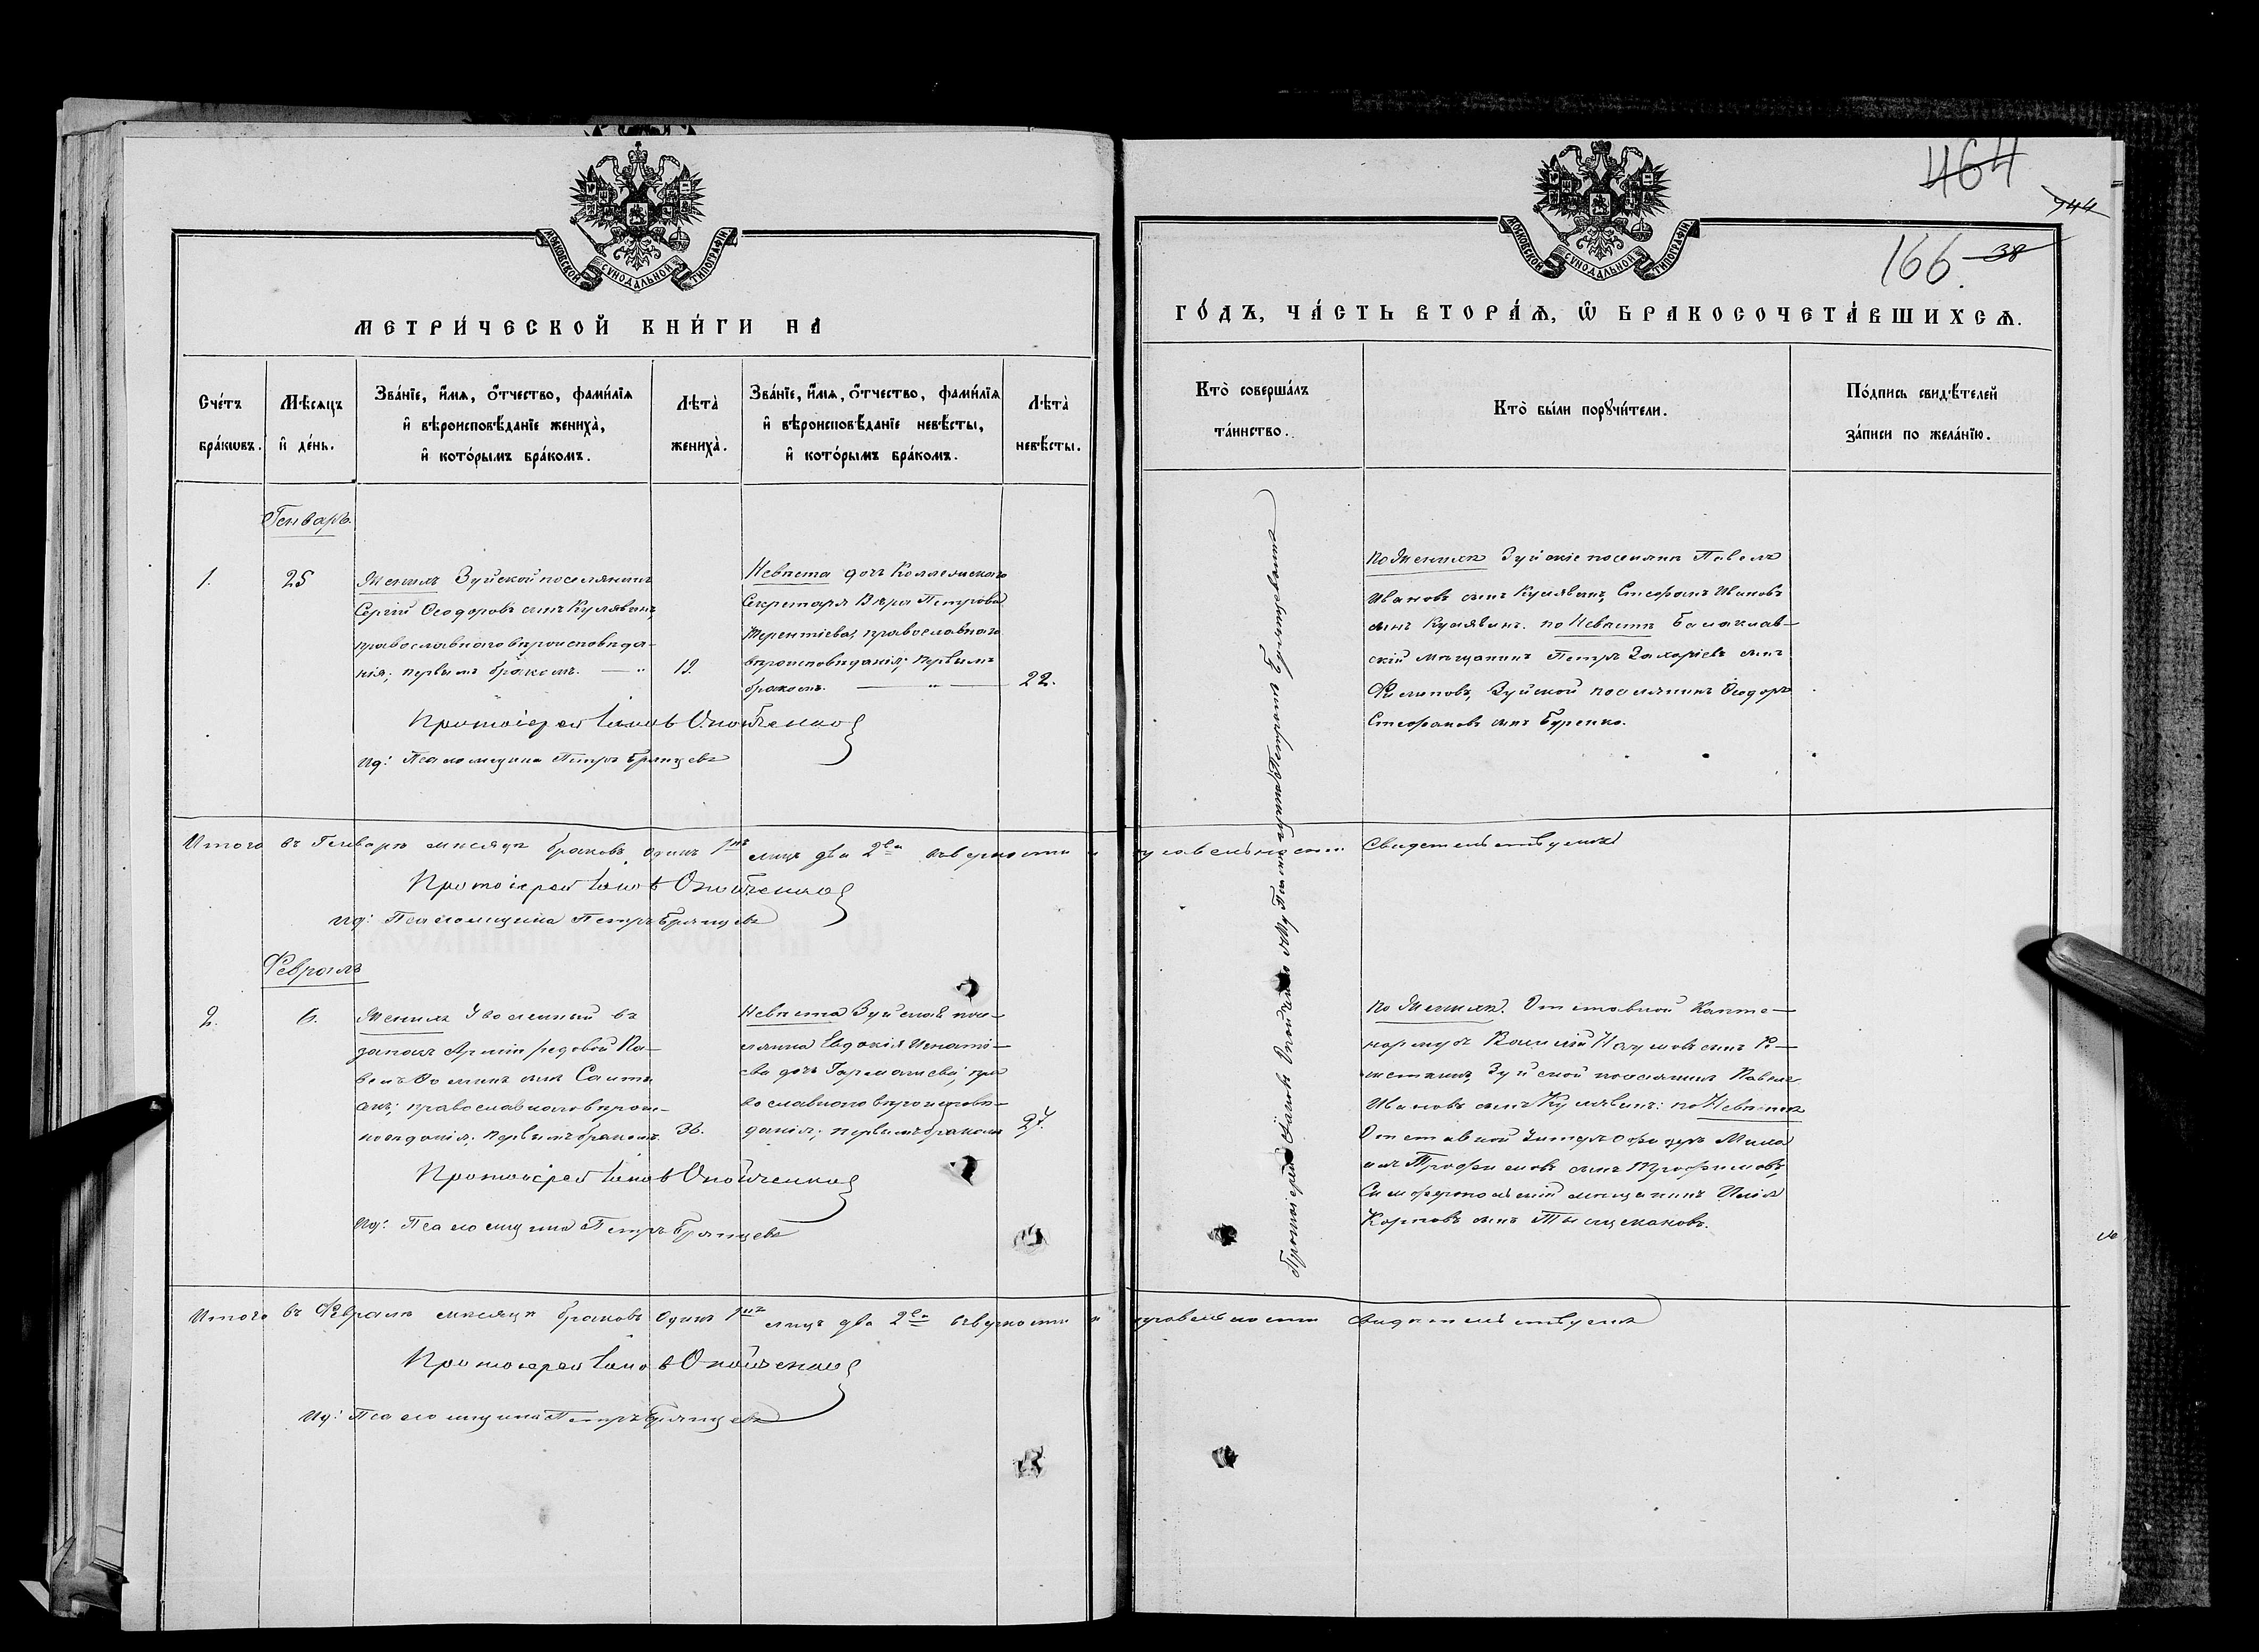 МОСКОВСКОЙ СУНОДАЛЬНОЙ ТИПОГРАФІИ
МЕТРИ́ЧЕСКОЙ КНИ́ГИ НА
Сче́тъ бра́кѡвъ.
Мѣ́сяцъ и҆ де́нь.
Зва́нїе, и҆́мѧ, ѻ҆́тчество, фами́лїѧ
и҆ вѣроисповѣ́данїе жениха̀,
и҆ кото́рымъ бра́комъ.
Лѣта̀ жениха̀.
Зва́нїе, и҆́мѧ, ѻ҆́тчество, фами́лїѧ
и҆ вѣроисповѣ́данїе невѣ́сты,
и҆ кото́рымъ бра́комъ.
Лѣта̀ невѣ́сты.
Генварь
1.
25
Женихъ Зуйской поселянинъ
Сергій Ѳеодоровъ сынъ Кулявинъ,
православнаго вѣроисповѣда-
нія; первымъ бракомъ. — "
19.
Невѣста дочь Коллежскаго
Секретаря Вѣра Петрова
Терентіева, православнаго
вѣроисповѣданія; первымъ
бракомъ. — " —
22.
Протоіерей Іаковъ
Ид: Псаломщика Петръ Брянцевъ
Итого въ Генварѣ мѣсяцѣ браковъ одинъ 1нъ лицъ два 2ва вѣрность и
Протоіерей Іаковъ
Ид: Псаломщика Петръ Брянцевъ
Февраль
2.
6.
Женихъ Уволенный въ
запасъ Арміи рядовой Па-
велъ Ѳоминъ сынъ
православнаго вѣроис-
повѣданія; первымъ бракомъ.
36.
Невѣста Зуйская посе-
лянка Евдокія Игнаті-
ева дочь пра-
вославнаго вѣроисповѣ-
данія; первымъ бракомъ
27.
Протоіерей Іаковъ
Ид: Псаломщика Петръ Брянцевъ
Итого въ Февралѣ мѣсяцѣ браковъ Одинъ 1нъ лицъ два 2ва вѣрность и
Протоіерей Іаковъ
Ид: Псаломщика Петръ Брянцевъ
464
744
166. 38
МОСКОВСКОЙ СУНОДАЛЬНОЙ ТИПОГРАФІИ
ГО́ДЪ, ЧА́СТЬ ВТОРА́Ѧ, Ѽ БРАКОСОЧЕТА́ВШИХСѦ.
Кто̀ соверша́лъ
та́инство.
Кто̀ бы́ли порꙋчи́тели.
По́дпись свидѣ́телей
за́писи по жела́нїю.
Протоіерей Іаковъ
По Женихѣ Зуйскіе поселяне Павелъ
Ивановъ сынъ Кулявинъ, Стефанъ Ивановъ
сынъ Кулявинъ. по Невѣстѣ Балаклав-
скій мѣщанинъ Петръ Захаріевъ сынъ
Филиповъ, Зуйской поселянинъ Ѳеодоръ
Стефановъ сынъ Буренко.
свидетельствуемъ
по Женихѣ. Отставной Капте-
нармусъ Василій Наумовъ сынъ
Зуйской поселянинъ Павелъ
Ивановъ сынъ Кулявинъ: по Невѣстѣ
Отставной Унтеръ офицеръ
Трофимовъ сынъ Трофимовъ,
Симферопольскій мѣщанинъ Илія
Карповъ сынъ
свидетельствуемъ